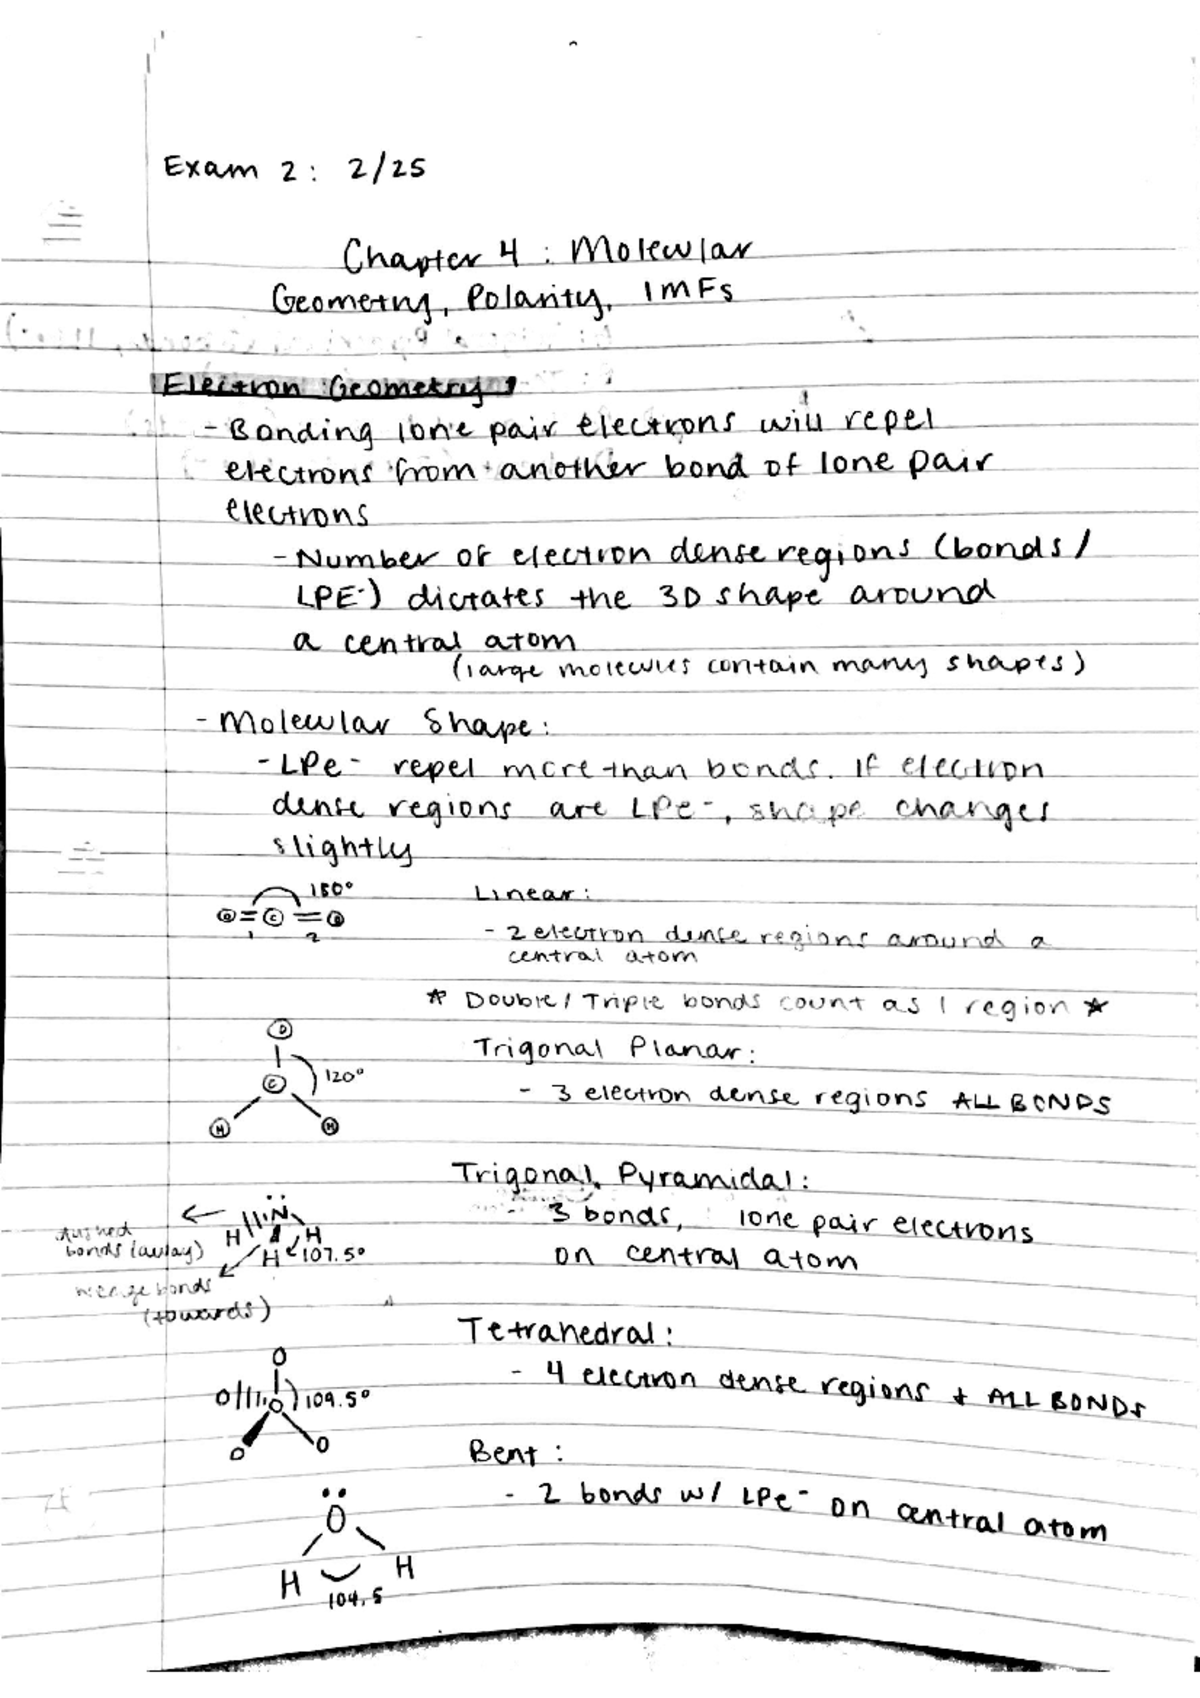 Exam 2: 2/25
Chapter 4: Molecular
Geometry, Polarity, IMFs
Electron Geometry
- Bonding lone pair electrons will repel
electrons from another bond of lone pair
electrons
- Number of electron dense regions (bonds/
LPE-) dictates the 3D shape around
a central atom
(large molecules contain many shapes)
- Molecular Shape:
- LPe- repel more than bonds. If electron
dense regions are LPe-, shape changes
slightly
180°
O=C=O
1 2
Linear:
- 2 electron dense regions around a
central atom
* Double/Triple bonds count as 1 region *
O
C
120°
H H
Trigonal Planar:
- 3 electron dense regions ALL BONDS
Trigonal Pyramidal:
- 3 bonds, lone pair electrons
on central atom
N
H H
H 107.5°
bonds (away)
bonds
(towards)
Tetrahedral:
- 4 electron dense regions + ALL BONDS
O
O O 109.5°
O O
Bent:
- 2 bonds w/ LPe- on central atom
O
H H
104.5